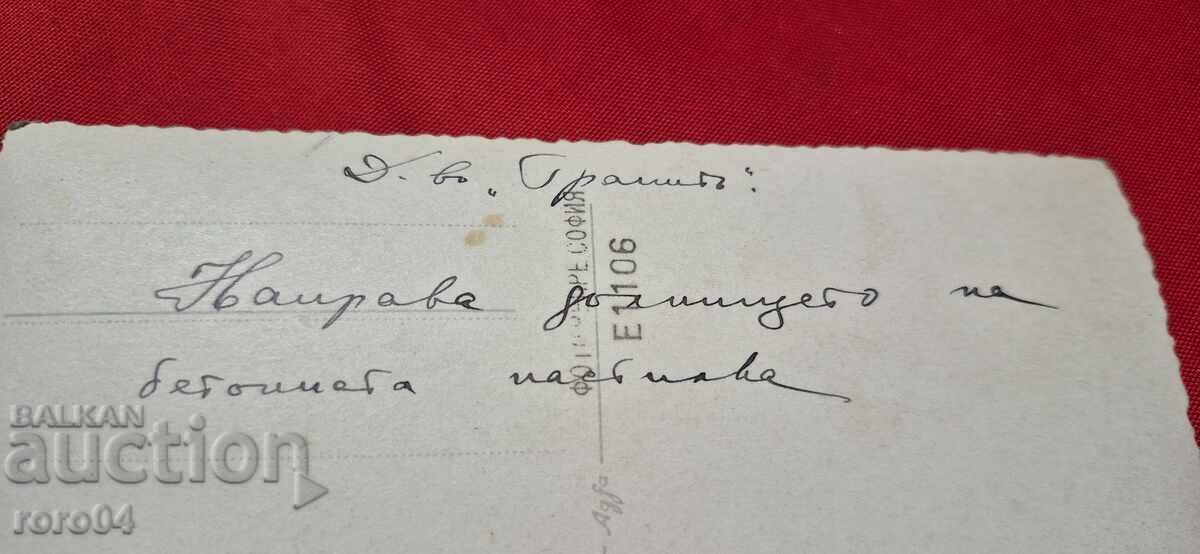 Д-во „Гранитъ".
Направа долницето на
бетонната настилка
ФОТО ПАСКОВ РЕ СОФИЯ
Е1106
BALKAN
auction
roro04